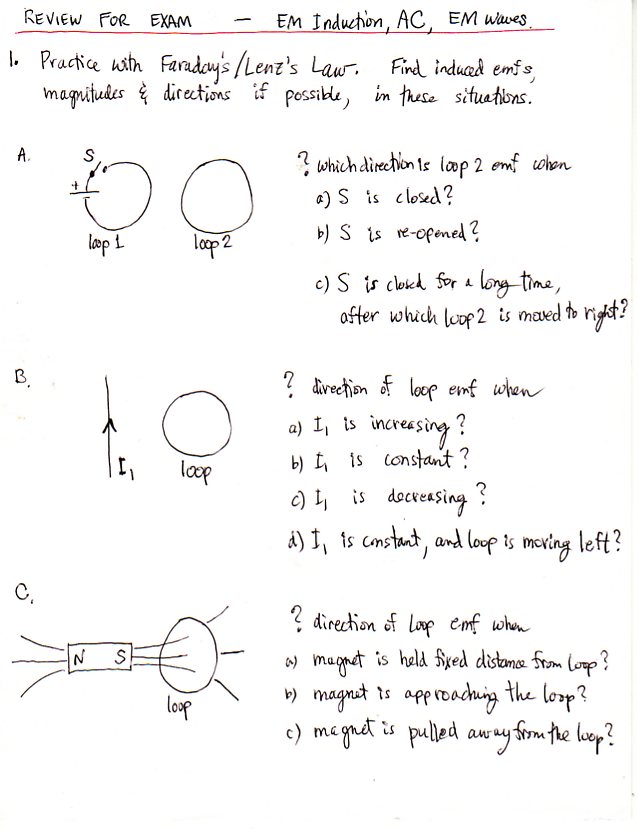 REVIEW FOR EXAM — EM Induction, AC, EM Waves.
1. Practice with Faraday's/Lenz's Law. Find induced emfs,
magnitudes & directions if possible, in these situations.
A.
S
+
loop 1
loop 2
? which direction is loop 2 emf when
a) S is closed?
b) S is re-opened?
c) S is closed for a long time,
after which loop 2 is moved to right?
B.
I₁
loop
? direction of loop emf when
a) I₁ is increasing?
b) I₁ is constant?
c) I₁ is decreasing?
d) I₁ is constant, and loop is moving left?
C.
N S
loop
? direction of loop emf when
a) magnet is held fixed distance from loop?
b) magnet is approaching the loop?
c) magnet is pulled away from the loop?